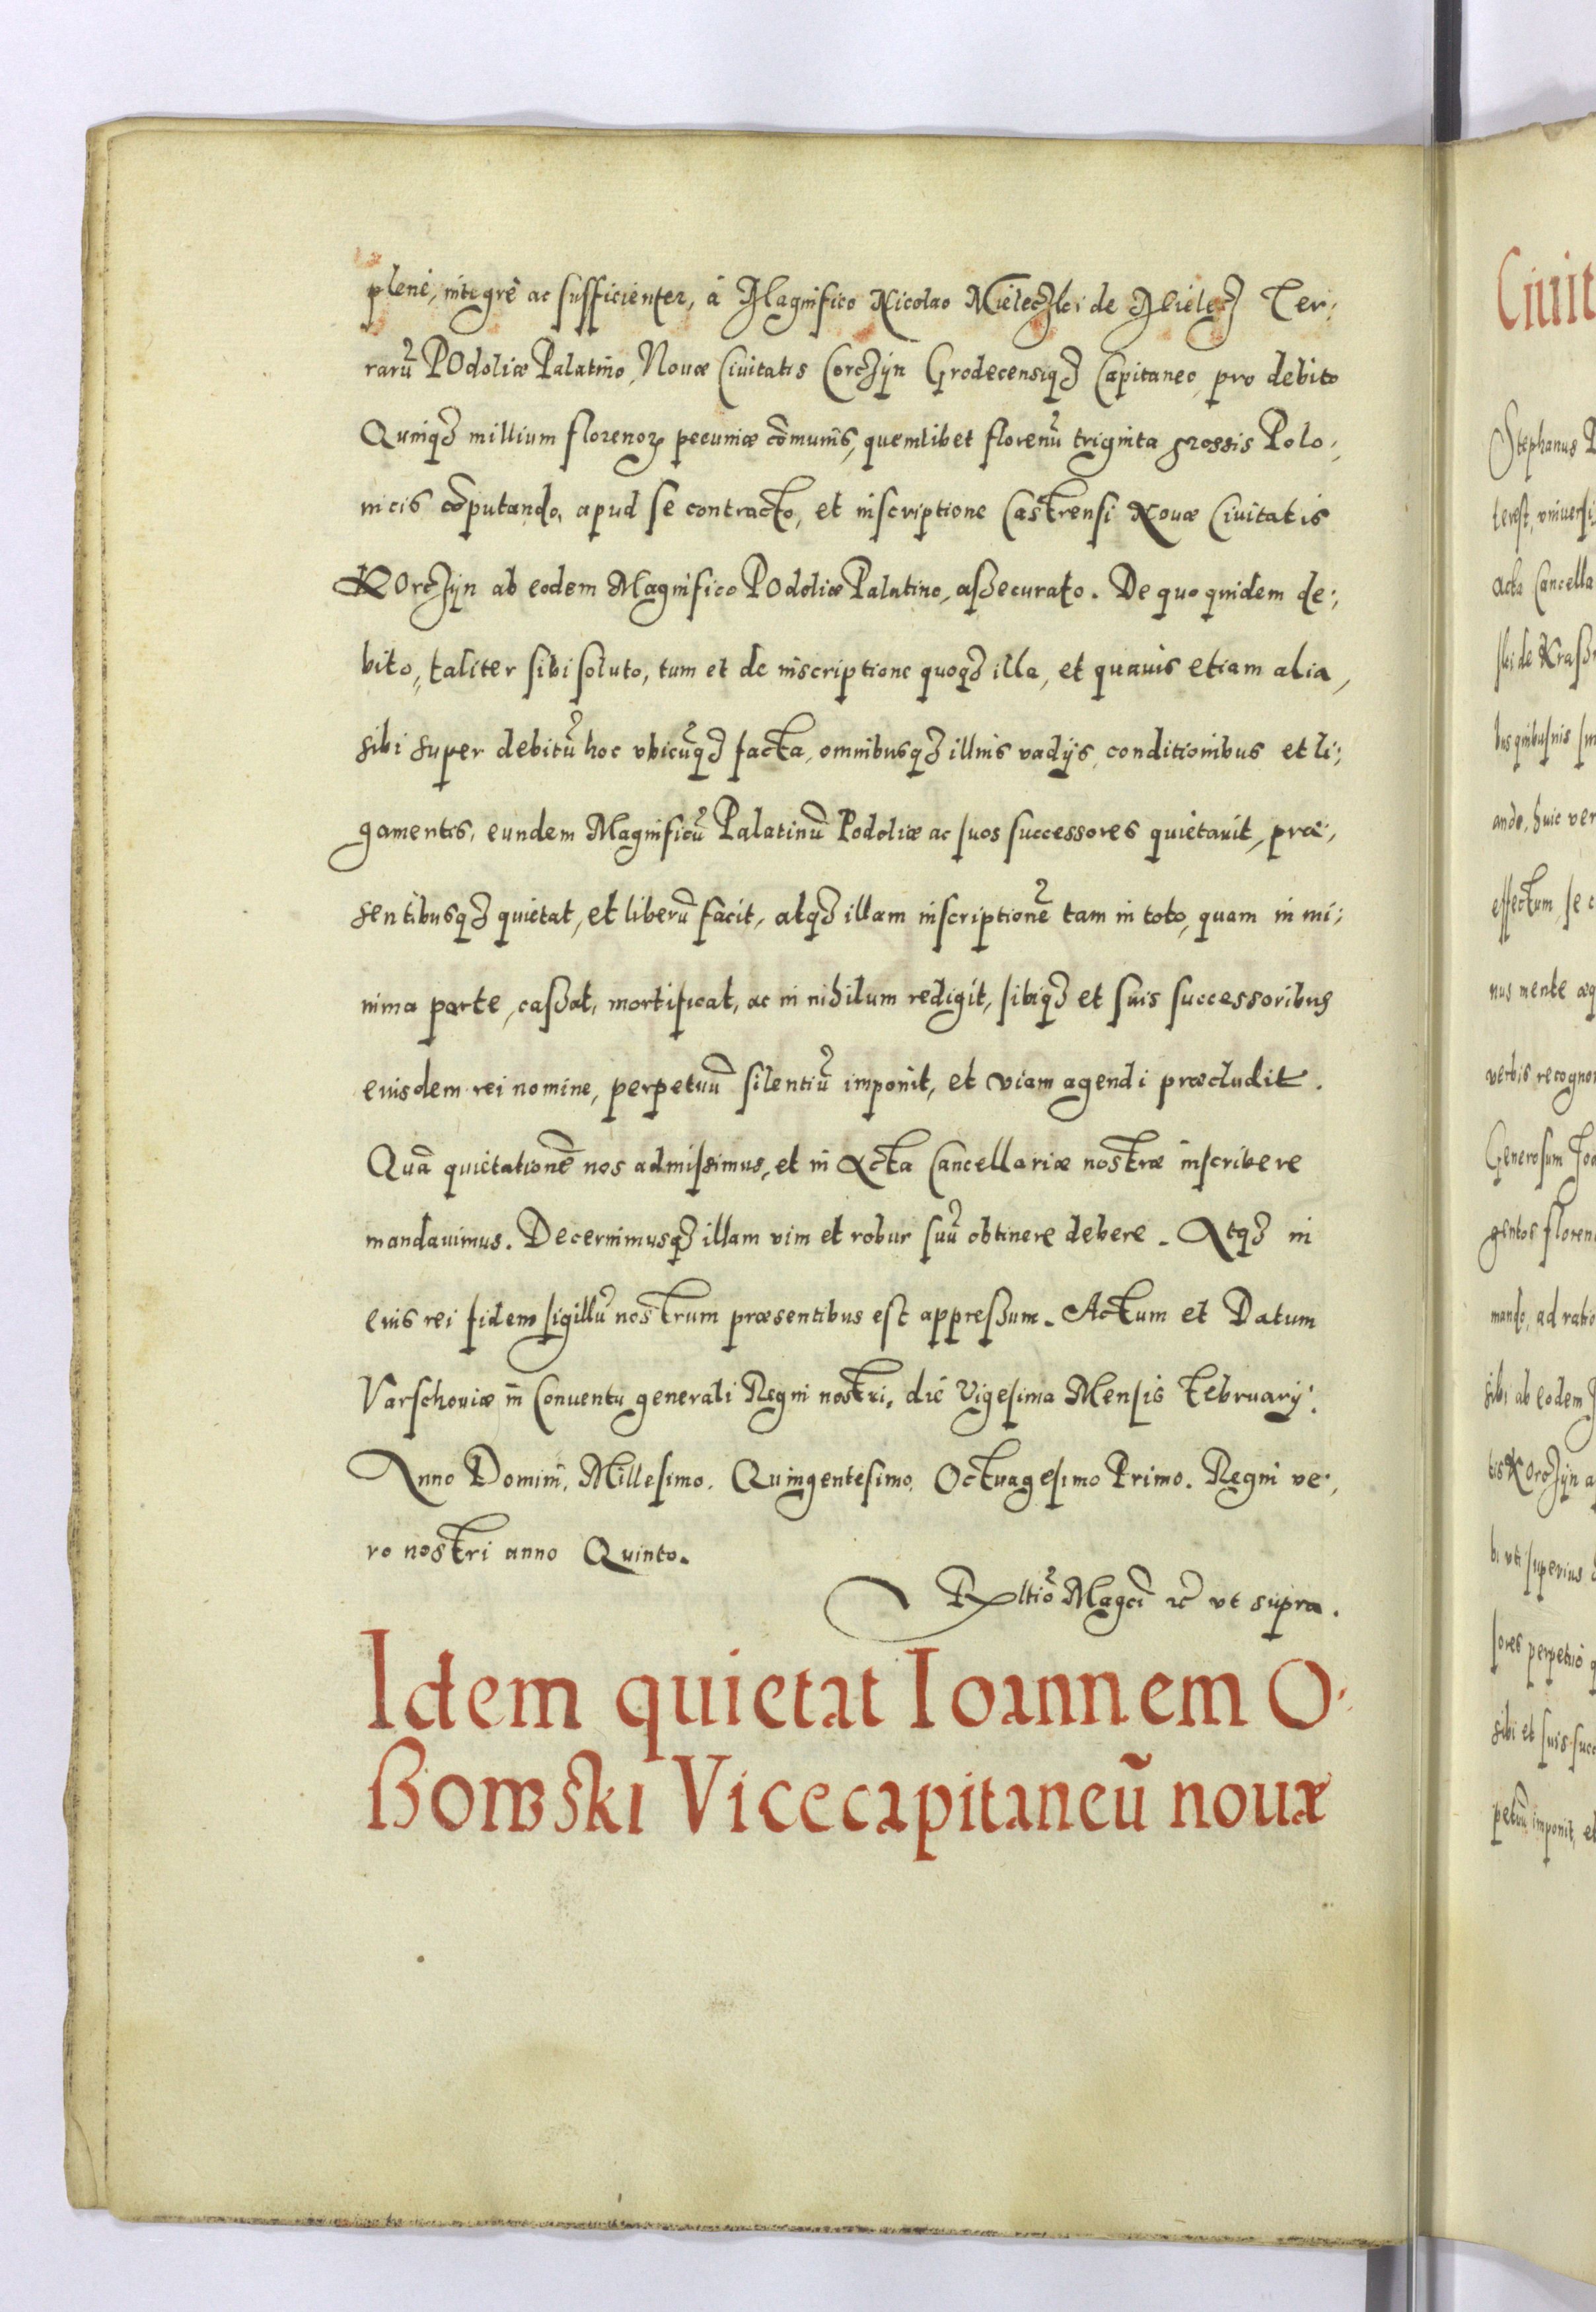 plenè, integrè ac sufficienter, à Magnifico Nicolao Mieleczki de Mielecz Ter,
rarũ Podoliæ Palatino, Nouæ Ciuitatis Corczijn Grodecensiq3 Capitaneo, pro debito
Quinq3 millium florenoꝝ pecuniæ cõmunis, quemlibet florenũ triginta grossis Polo,
nicis cõputando, apud se contracto, et inscriptione Castrensi Nouæ Ciuitatis
Korczijn ab eodem Magnifico Podoliæ Palatino, aßecurato. De quo quidem de,
bito, taliter sibi soluto, tum et de inscriptione quoq3 illa, et quauis etiam alia,
sibi super debitũ hoc vbicũq3 facta, omnibusq3 illius vadijs, conditionibus et li,
gamentis, eundem Magnificũ Palatinũ Podoliæ ac suos successores quietauit, præ,
sentibusq3 quietat, et liberũ facit, atq3 illam inscriptionẽ tam in toto, quam in mi,
nima parte, caßat, mortificat, ac in nihilum redigit, sibiq3 et suis successoribus
eiusdem rei nomine, perpetuũ silentiũ imponit, et viam agendi præcludit.
Quã quietationẽ nos admisimus, et in Acta Cancellariæ nostræ inscribere
mandauimus. Decernimusq3 illam vim et robur suũ obtinere debere. Atq3 in
eius rei fidem sigillũ nostrum præsentibus est appreßum. Actum et Datum
Varschouiæ in Conuentu generali Regni nostri, die Vigesima Mensis February.
Anno Domini, Millesimo, Quingentesimo, Octuagesimo Primo. Regni ve,
ro nostri anno Quinto.
Rltiõ Magci ꝛc vt supra.
Idem quietat Ioannem O,
ßowski Vicecapitaneũ nouæ
Ciuit
Stephanus
terest, vniuersi
Acta Cancella
ski de Kraß
ando, huic ver
effectum, se
nus mente
verbis recogno
Generosum
gentos floren
mando, ad ratio
sibi ab eodem
tis Korczijn
bi vti superius
sores perpetuò
sibi et suis suc
petuũ imponit, et